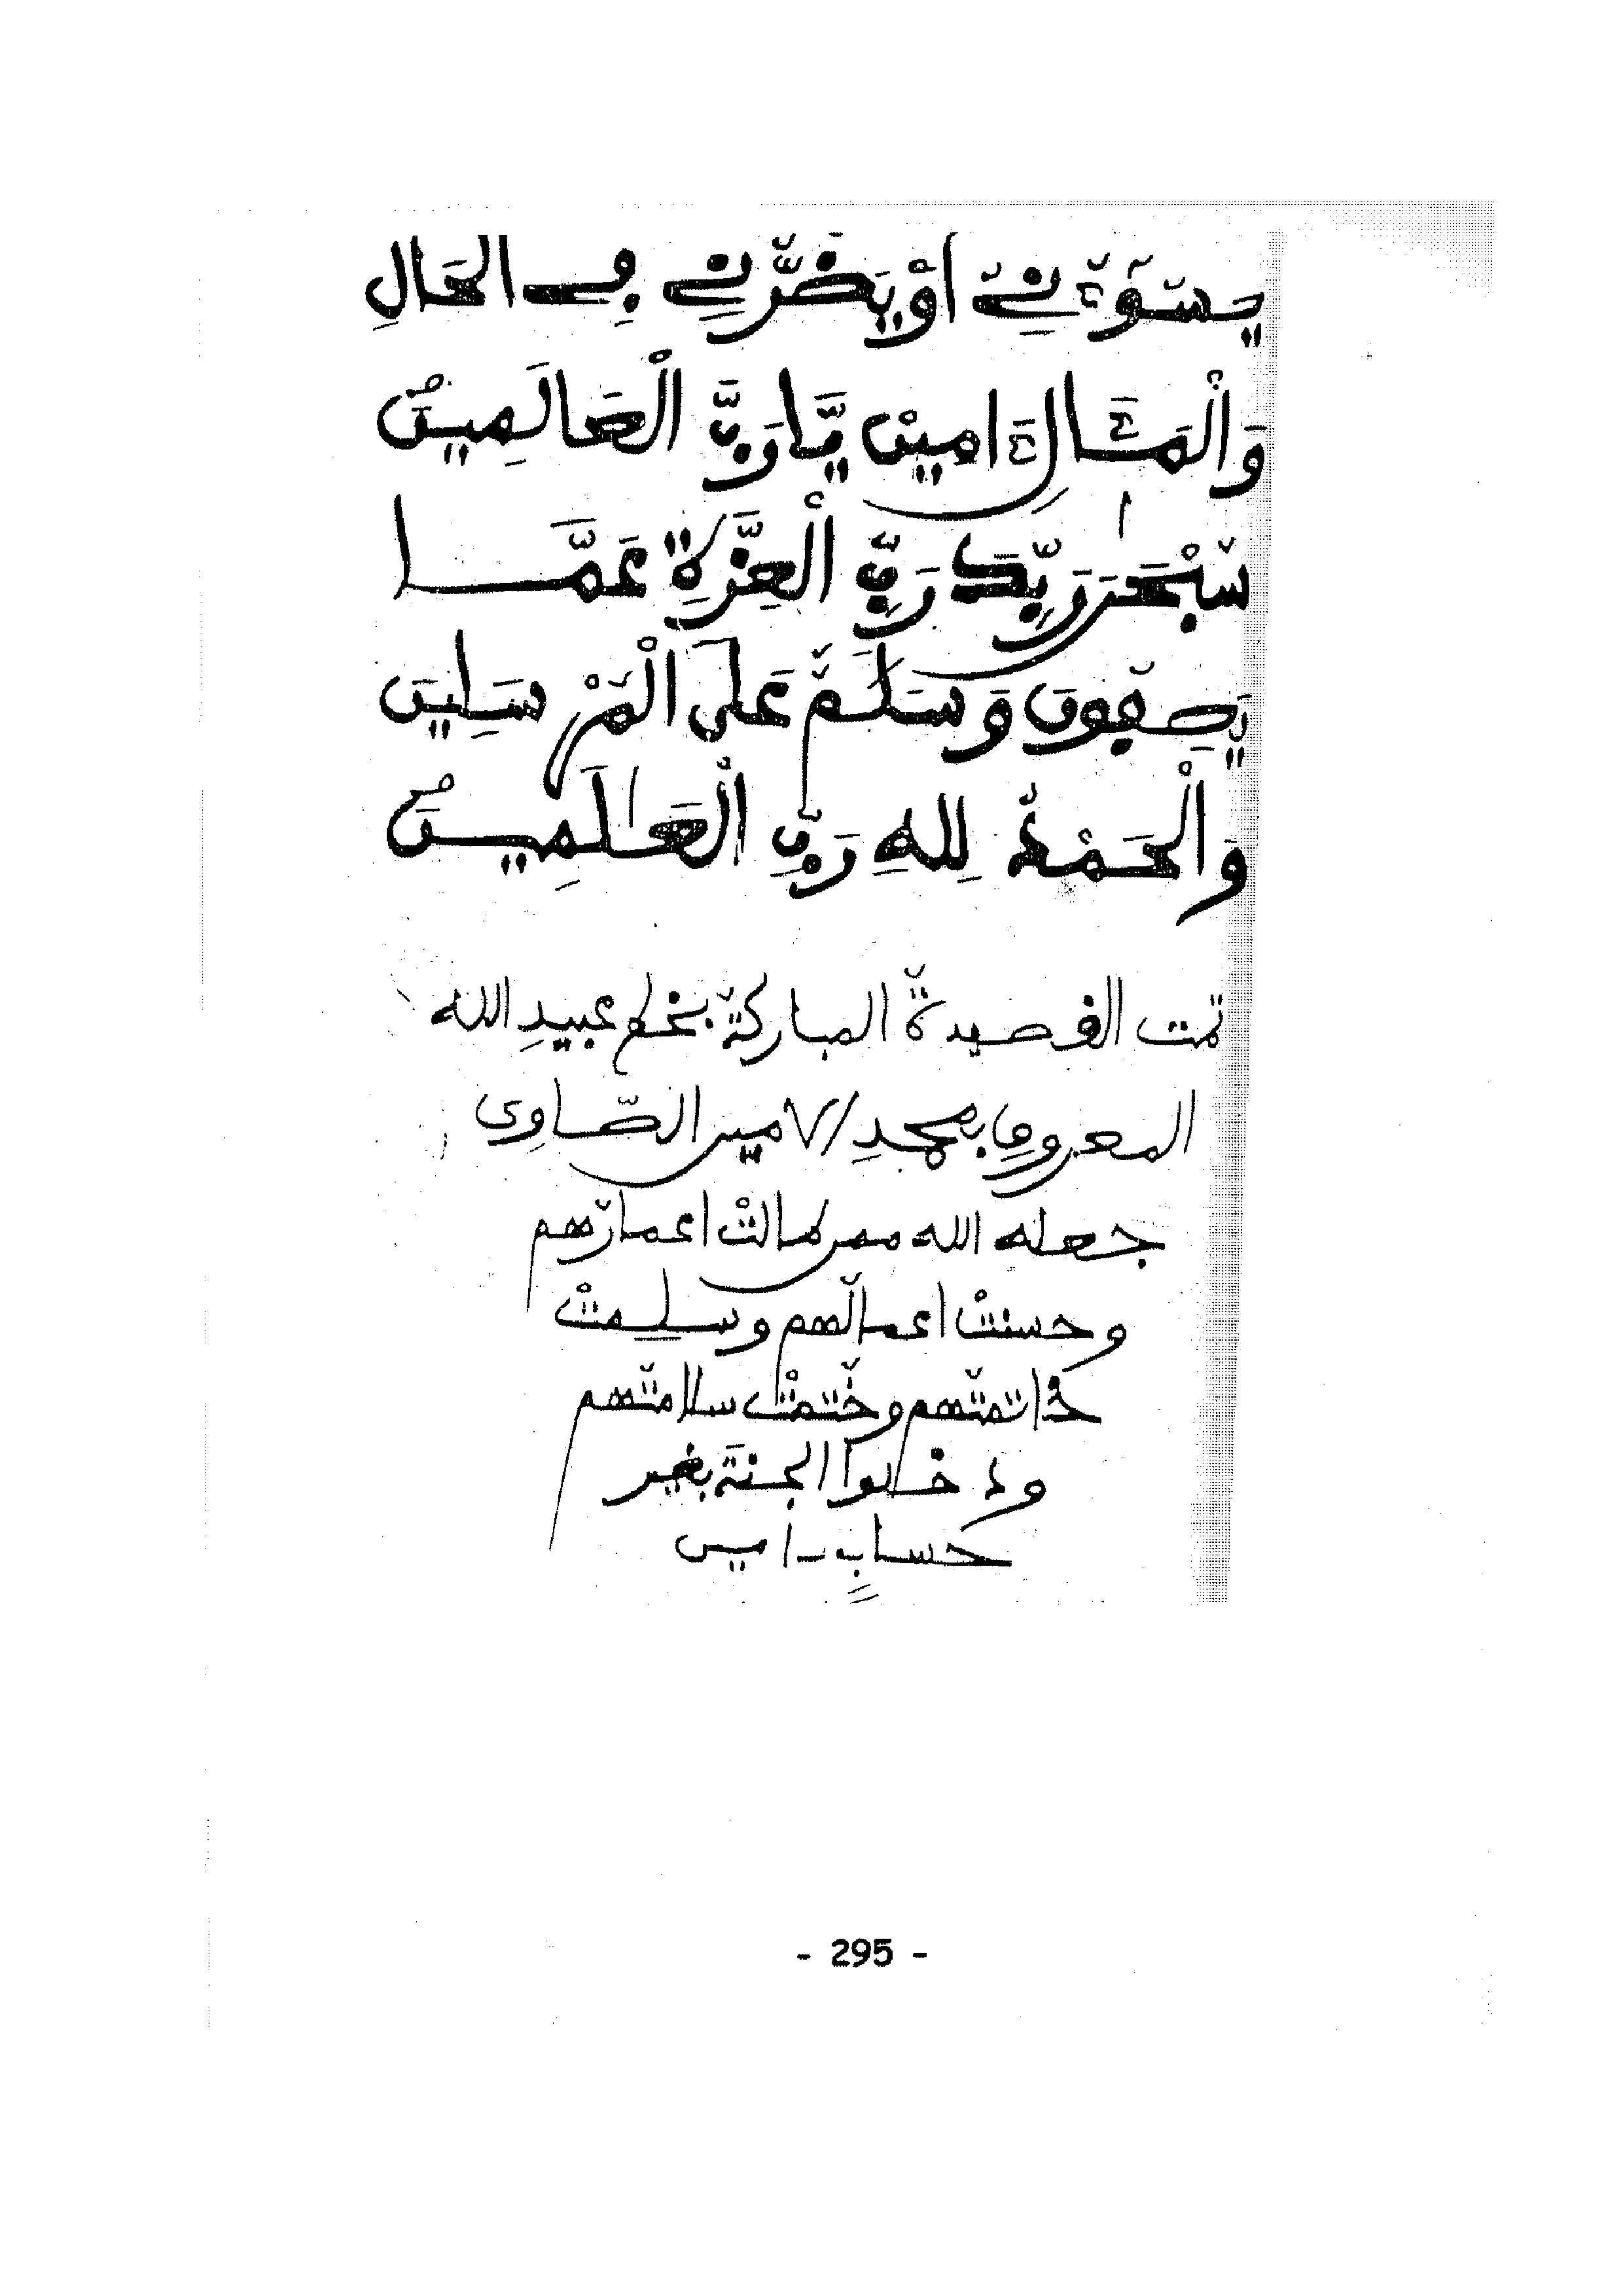 يَسُوٓءُنِے أَوْ يَضُرُّنِے فِے الْحَالِ
وَالْمَـَٔالِ ءَامِين يَّا رَبَّ الْعَالَمِينَ
سُبْحَٰنَ رَبِّكَ رَبِّ الْعِزَّةِ عَمَّا
يَصِفُونَ وَسَلَٰمٌ عَلَى الْمُرْسَلِينَ
وَالْحَمْدُ لِلهِ رَبِّ الْعَٰلَمِينَ
تمت القصيدةُ المباركةُ بخط عبيدِ الله
المعروفِ بمحمدِ الامين الصَّاوِى
جعله الله ممن طالتْ اعمارُهم
وحسنتْ اعمالُهم وسلِمتْ
خاتمتُهم وختمتْ سلامتُهم
ودخلوا الجنةَ بغير
حسابٍ - امين
- 295 -